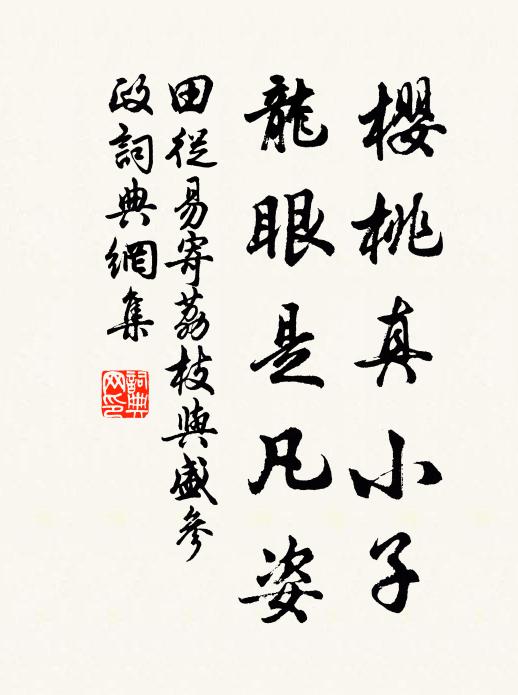 櫻桃真小子
龍眼是凡姿
田從易寄荔枝與盛參
政詞典網集
詞典网印